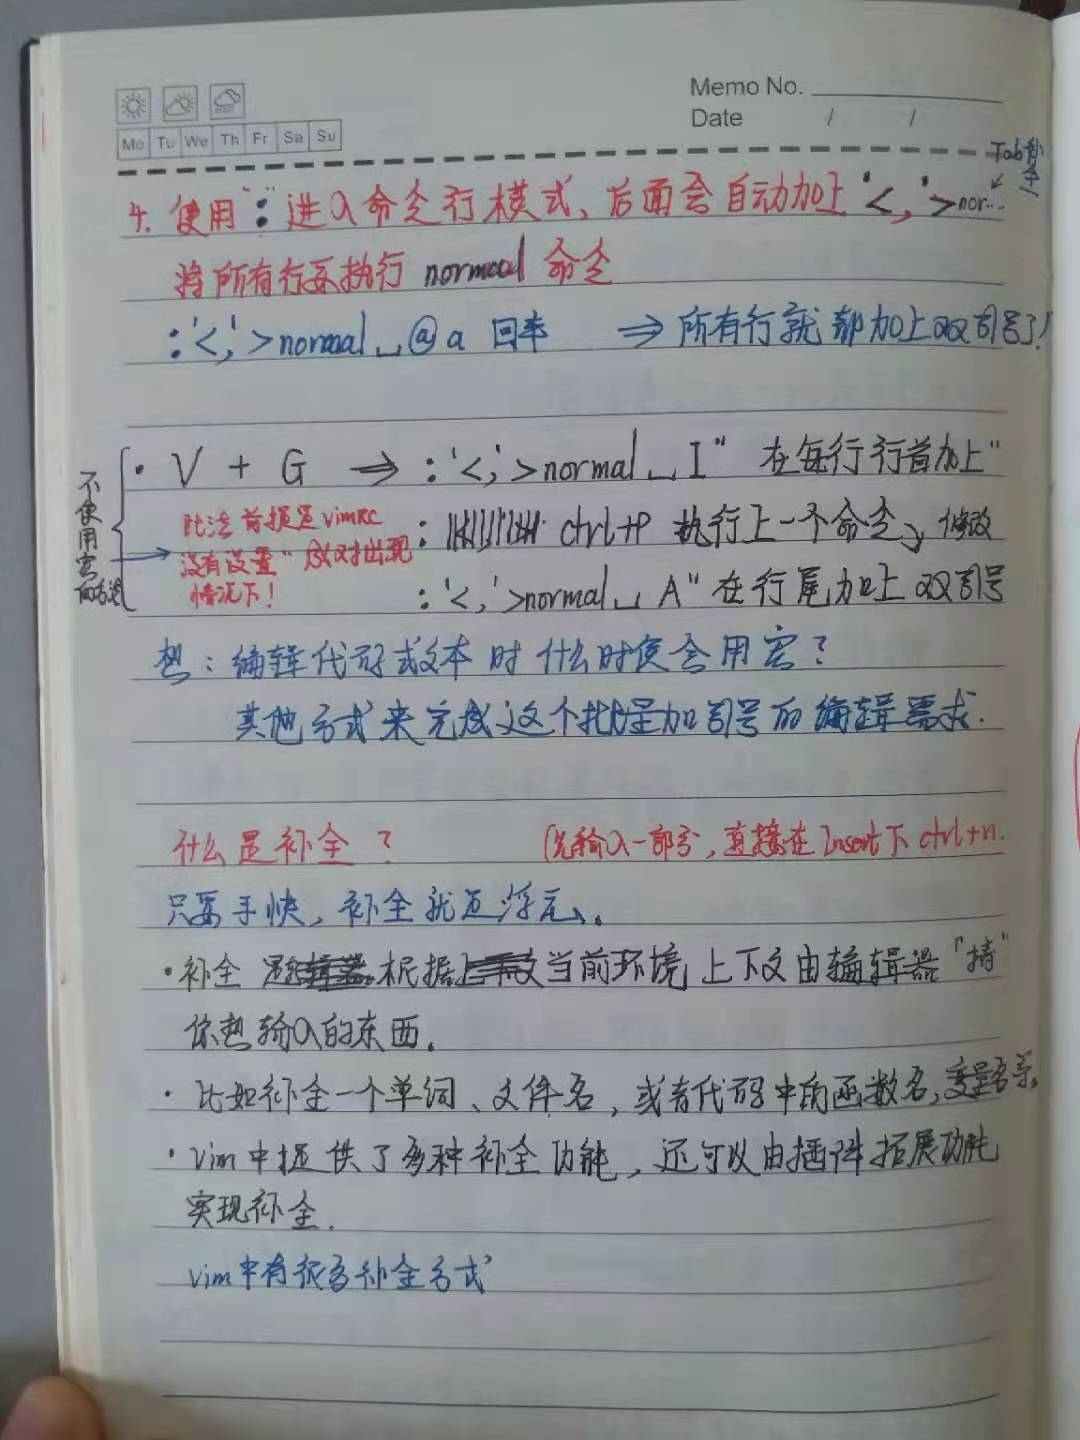 Memo No.
Date / /
Mo Tu We Th Fr Sa Su
Tab补全
4. 使用":"进入命令行模式、后面会自动加上'<,'>nor...
将所有行来执行 normal 命令
:'<,'>normal␣@a 回车 ⇒ 所有行就都加上双引号了!
不使用宏的方法
· V + G ⇒ :'<,'>normal␣I" 在每行行首加上"
此法前提是vimRC
没有设置"成对出现
情况下!
: ctrl+P 执行上一个命令,修改
:'<,'>normal␣A"在行尾加上双引号
想:编辑代码或文本时什么时候会用宏?
其他方式来完成这个批量加引号的编辑需求.
什么是补全? (先输入一部分,直接在Insert下ctrl+n.
只要手快,补全就是浮云。
·补全 根据当前环境上下文由编辑器「猜"
你想输入的东西.
·比如补全一个单词、文件名,或者代码中的函数名,变量名等.
·vim中提供了多种补全功能,还可以由插件拓展功能
实现补全.
vim中有很多补全方式